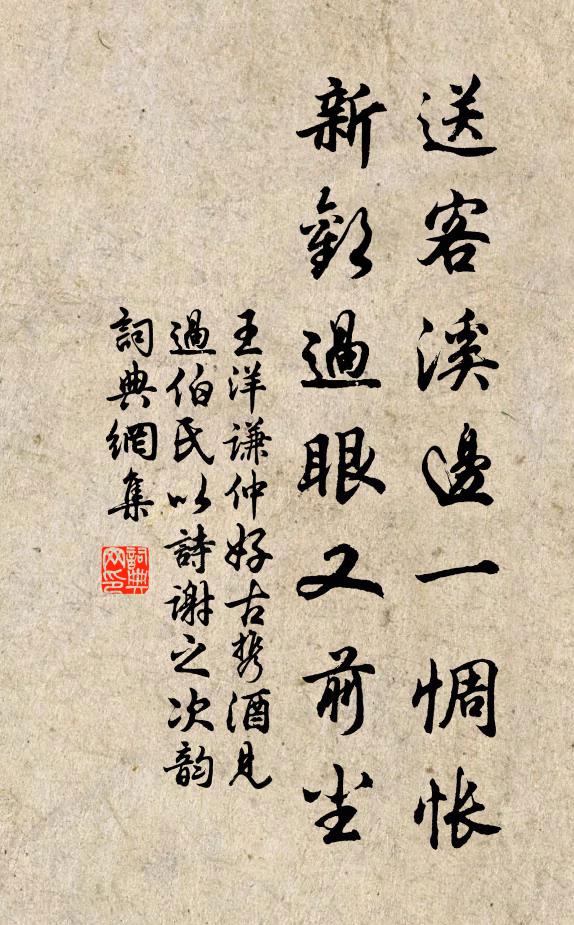 送客溪邊一惆悵
新歡過眼又前尘
王洋謙仲好古携酒見
過伯氏以詩谢之次韵
詞典網集
詞典网印